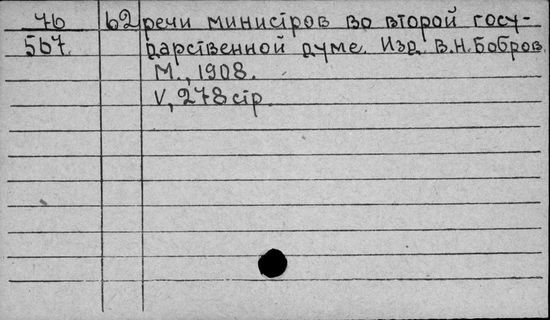 76 62 речи министров во второй госу-
567 дарственной думе. Изд. В.Н.Бобров.
М., 1908.
V, 278 стр.